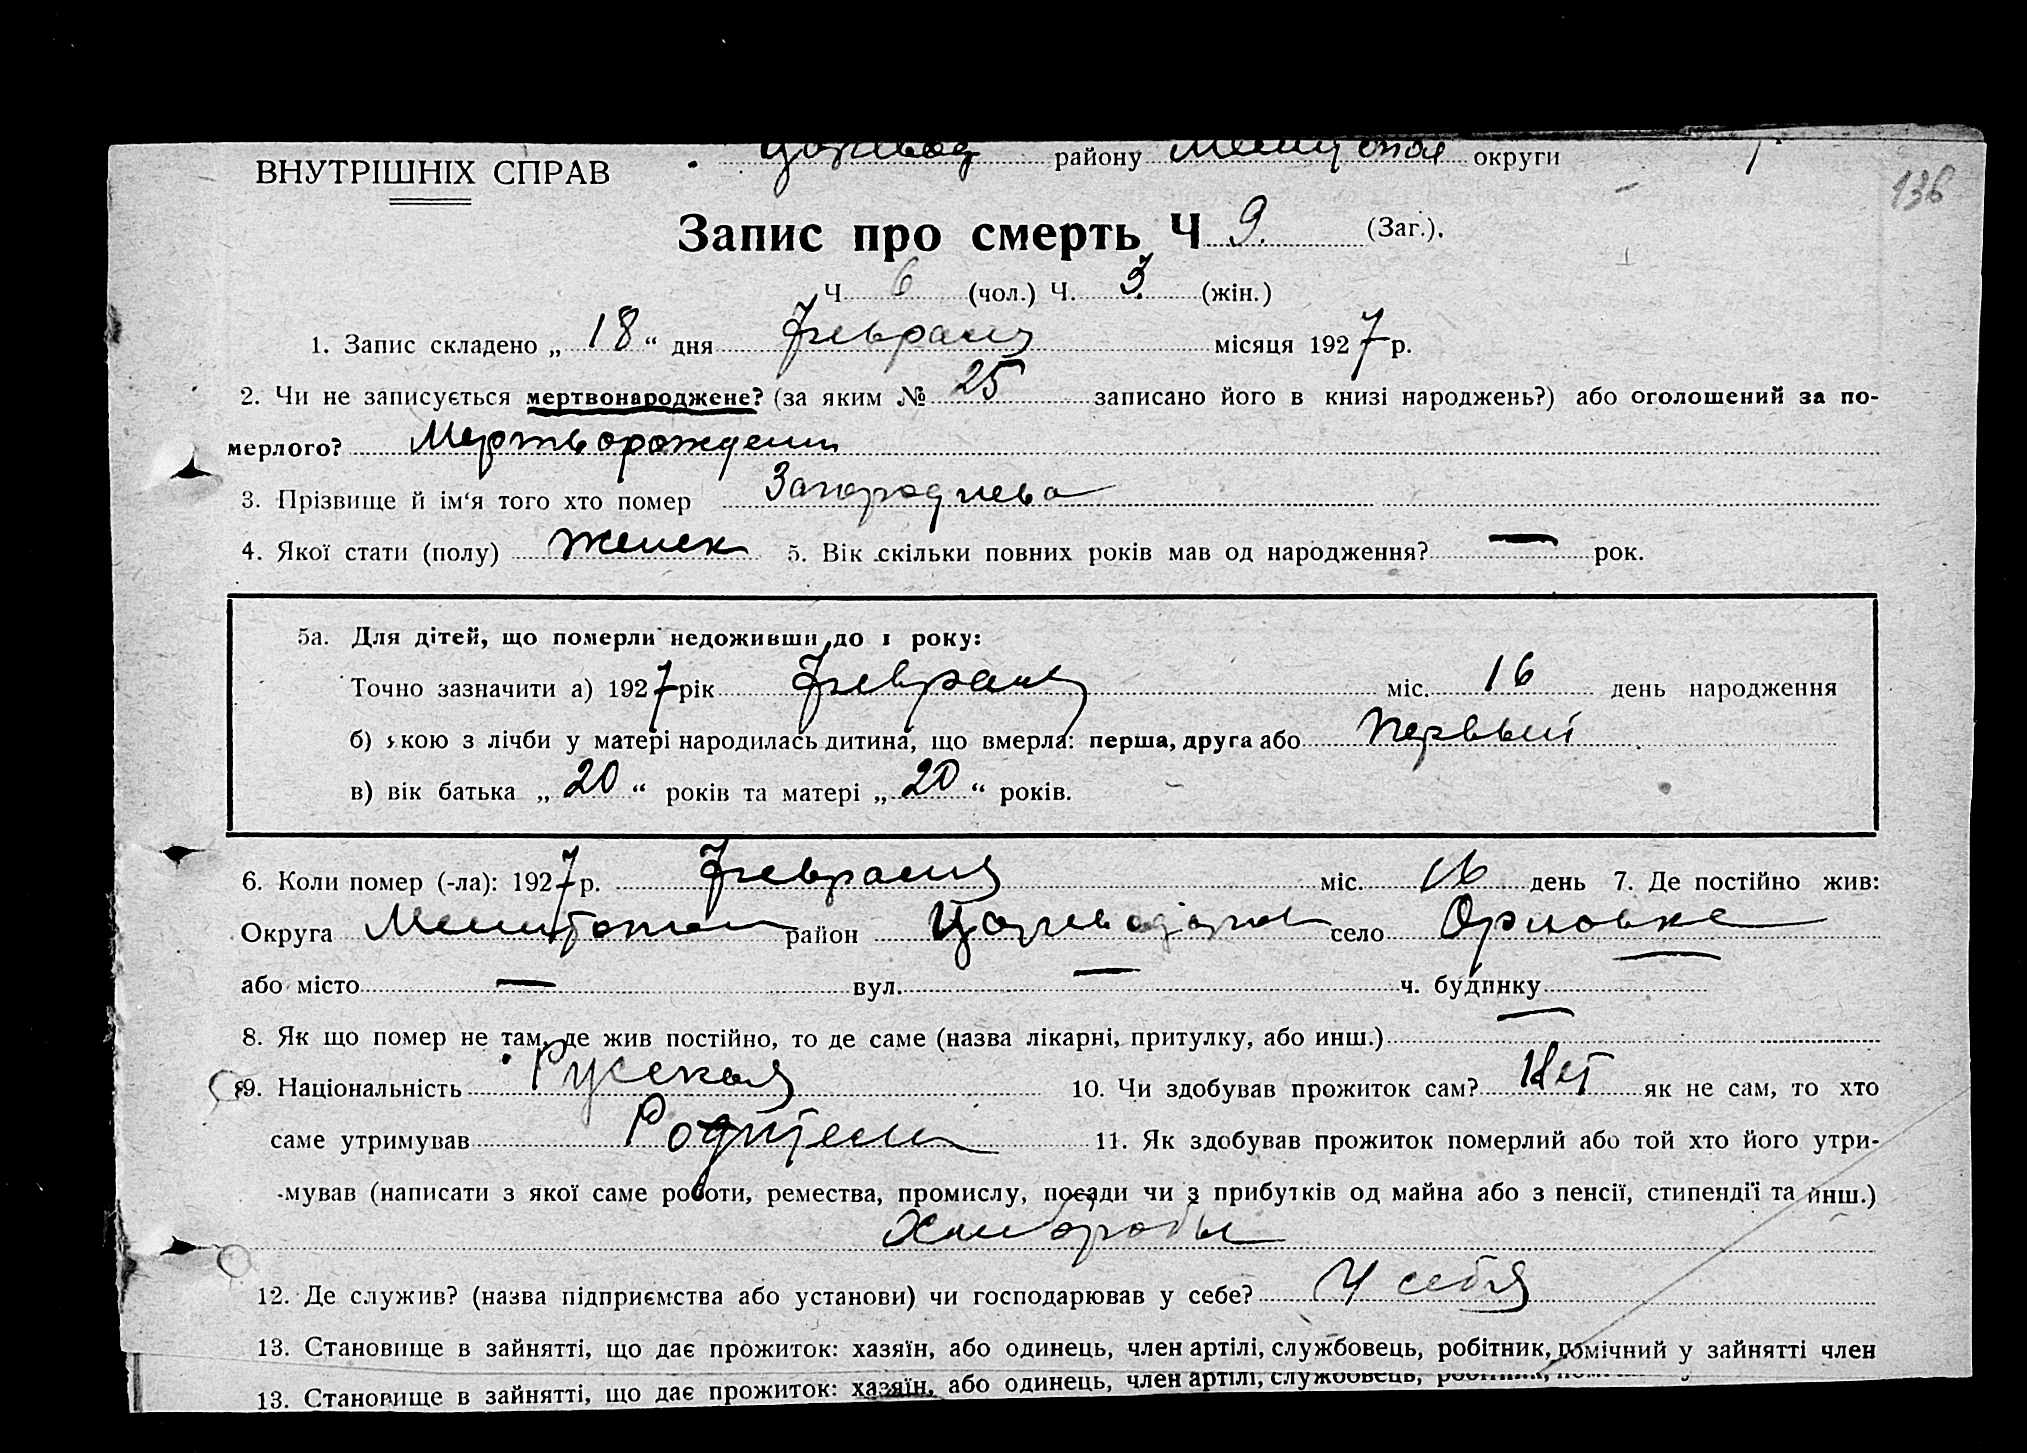 ВНУТРІШНІХ СПРАВ району округи
136
Запис про смерть Ч 9. (Заг.).
Ч 6 (чол.) Ч. 3 (жін.)
1. Запис складено „ 18 “ дня февраля місяця 1927 р.
2. Чи не записується мертвонароджене? (за яким № 25 записано його в книзі народжень?) або оголошений за по-
мерлого? Мертворожден
3. Прізвище й ім‘я того хто помер Загороднева
4. Якої стати (полу) женск 5. Вік скільки повних років мав од народження? — рок.
5а. Для дітей, що померли недоживши до 1 року:
Точно зазначити а) 1927 рік февраля міс. 16 день народження
б) якою з лічби у матері народилась дитина, що вмерла: перша, друга або первый
в) вік батька „ 20 “ років та матері „ 20 “ років.
6. Коли помер (-ла): 1927 р. февраля міс. 16 день 7. Де постійно жив:
Округа район село Орловке
або місто — вул. — ч. будинку —
8. Як що помер не там, де жив постійно, то де саме (назва лікарні, притулку, або инш.) —
9. Національність Русская 10. Чи здобував прожиток сам? Нет як не сам, то хто
саме утримував Родители 11. Як здобував прожиток померлий або той хто його утри-
мував (написати з якої саме роботи, ремества, промислу, посади чи з прибутків од майна або з пенсії, стипендії та инш.)
Хлебороды
12. Де служив? (назва підприємства або установи) чи господарював у себе? У себя
13. Становище в зайнятті, що дає прожиток: хазяїн, або одинець, член артілі, службовець, робітник, помічний у зайнятті член
13. Становище в зайнятті, що дає прожиток: хазяїн, або одинець, член артілі, службовець,